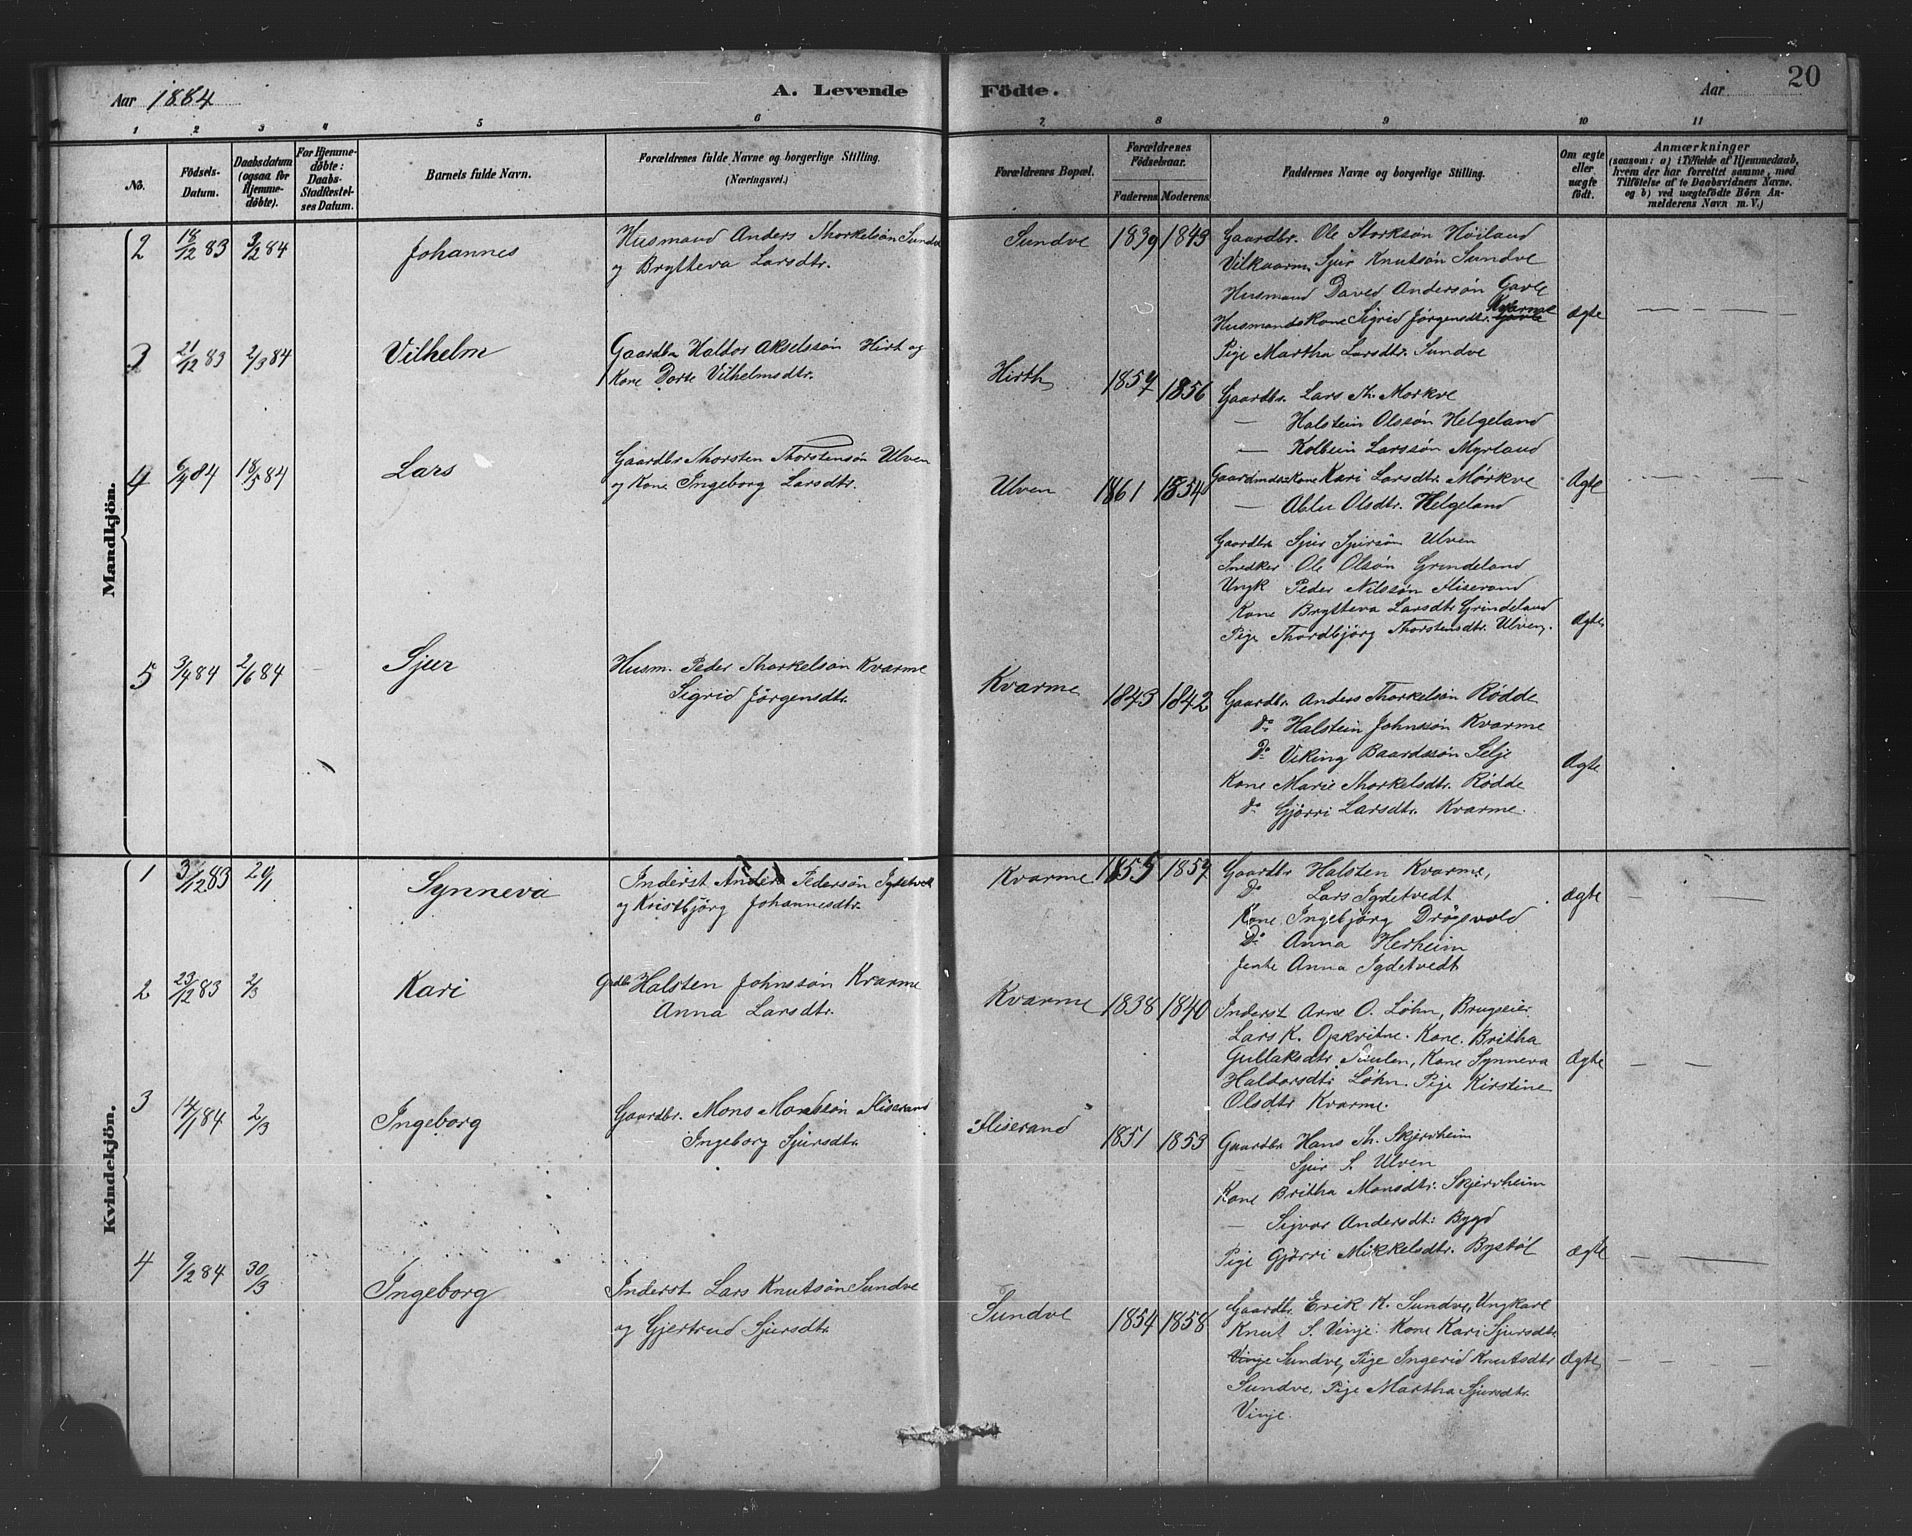 Aar 1884
A. Levende Födte.
Aar
20
1 2 3 4 5 6 7 8 9 10 11
No.
Födsels-Datum.
Daabsdatum (ogsaa for Hjemme-døbte).
For Hjemme-døbte: Daabs-Stadfæstel-ses Datum.
Barnets fulde Navn.
Forældrenes fulde Navne og borgerlige Stilling. (Næringsvei.)
Forældrenes Bopæl.
Forældrenes Födselsaar.
Faderens Moderens
Faddernes Navne og borgerlige Stilling.
Om ægte eller uægte født.
Anmærkninger
(saasom: a) i Tilfælde af Hjemmedaab,
hvem der har forrettet samme, med
Tilföielse af to Daabsvidners Navne.
og b) ved uægtefödte Börn An-
melderens Navn m. V.)
Mandkjön.
2 18/12 83 3/2 84 Johannes
Husmand Anders Thorkelsøn Sundve
og Brytteva Larsdtr.
Sundve 1839 1843
Gaardbr. Ole Storksøn Høiland
Vilkaarm. Sjur Knutsøn Sundve
Husmand David Andersøn Gavle
Husmandskone Sigrid Jørgensdtr. Kvarme
Pige Martha Larsdtr. Sundve
Ægte
3 21/12 83 2/3 84 Vilhelm
Gaardbr Haldor Akselssøn Hirt og
Kone Dorte Vilhelmsdtr.
Hirth 1857 1856
Gaardbr. Lars Th. Mørkve
— Halstein Olssøn Helgeland
— Kolbein Larssøn Myrland
Gaardmdskone Kari Larsdtr. Mørkve
— Olsdtr. Helgeland
Ægte
4 6/4 84 18/5 84 Lars
Gaardbr Thorsten Thorstensøn Ulven
og Kone Ingeborg Larsdtr.
Ulven 1861 1854
Gaardbr Sjur Sjursøn Ulven
Snedker Ole Olsøn Grindeland
Ungk Peder Nilssøn Fliserand
Kone Brytteva Larsdtr Grindeland
Pige Thordbjörg Thorstensdtr. Ulven.
Ægte
5 3/4 84 2/6 84 Sjur
Husm. Peder Thorkelsøn Kvarme
Sigrid Jørgensdtr.
Kvarme 1843 1842
Gaardbr. Anders Thorkelsøn Rødde
do Halstein Johnssøn Kvarme
Do Viking Baardssøn Selje
Kone Marie Thorkelsdtr. Rødde
do Gjørri Larsdtr. Kvarme.
Ægte
Kvindekjön.
1 3/12 83 20/1 Synneva
Inderst Anders Pedersøn Igdetvedt
og Kristbjörg Johannesdtr.
Kvarme 1855 1857
Gaardbr Halsten Kvarme,
Do Lars Igdetvedt
Kone Ingebjörg Drøgsvold
Do Anna Herheim
Jente Anna Igdetvedt
Ægte
2 23/12 83 2/3 Kari
Grdbr Halsten Johnssøn Kvarme
Anna Larsdtr.
Kvarme 1838 1840
Inderst Arne O. Løhn, Brugseier
Lars K. Opkvitne. Kone. Britha
Gullaksdtr. Saulen, Kone Synneva
Haldorsdtr Løhn. Pige Kirstine
Olsdtr Kvarme.
Ægte
3 14/1 84 2/3 Ingeborg
Gaardbr. Mons Monssøn Fliserand
Ingeborg Sjursdtr.
Fliserand 1851 1853
Gaardbr Hans Th. Skjervheim
— Sjur S. Ulven
Kone Britha Monsdtr. Skjervheim
— Sigvor Andersdtr. Bygd
Pige Gjørri Mikkelsdtr. Bystøl
Ægte
4 9/2 84 30/3 Ingeborg
Inderst Lars Knutsøn Sundve
og Gjertrud Sjursdtr.
Sundve 1854 1858
Gaardbr. Erik K. Sundve, Ungkarl
Knut S. Vinje. Kone Kari Sjursdtr
Vinje Sundve, Pige Ingerid Knutsdtr
Sundve. Pige Martha Sjursdtr.
Vinje.
Ægte